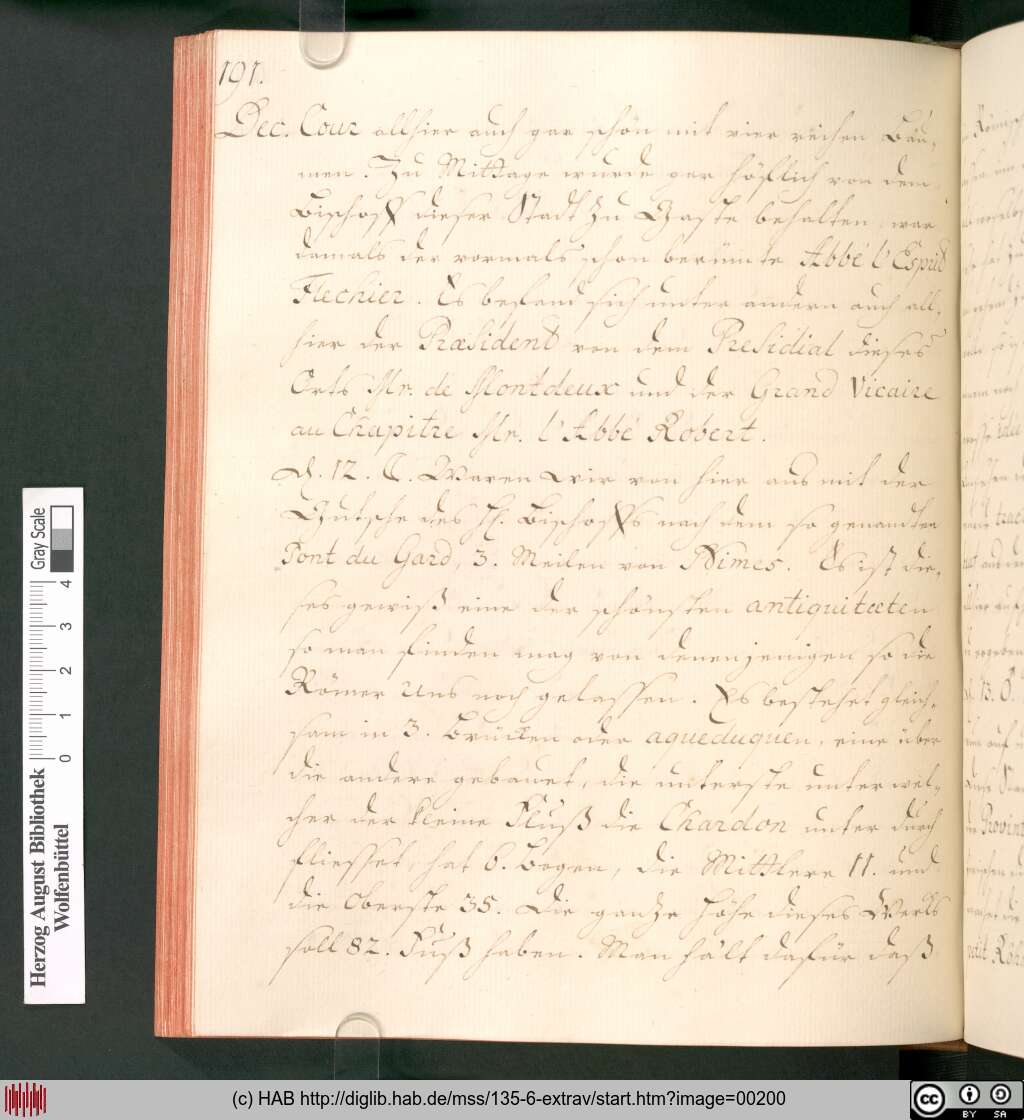 191.
Dec. Cour allhier auch gar schön mit vier reihen Bäu,
men. Zu Mittage wurde gar höflich von dem
Bischoff dieser Stadt zu Gaste behalten, war
damals der vormals schon berümte Abbé l'Esprit
Flechier. Es befand sich unter andern auch all,
hier der Præsident von dem Presidial dieses
Orts Mr. de Montdeux und der Grand Vicaire
au Chapitre Mr. l'Abbé Robert.
d. 12. C. Waren wir von hier aus mit der
Gutsche des H. Bischoffs nach dem so genandten
Pont du Gard, 3. Meilen von Nimes. Es ist die,
ses gewiß eine der schönsten antiquitæten
so man finden mag von denenjenigen so die
Römer Uns noch gelassen. Es bestehet gleich,
sam in 3. Brücken oder aqueduquen, eine über
die andere gebauet, die unterste unter wel,
cher der kleine Fluß die Chardon unter durch
fliesset, hat 6. Bogen, die Mittlere 11. und
die Oberste 35. Die gantze Höhe dieses Werks
soll 82. Fuß haben. Man hält dafür daß
Herzog August Bibliothek
Wolfenbüttel
Gray Scale
0 1 2 3 4
(c) HAB http://diglib.hab.de/mss/135-6-extrav/start.htm?image=00200
cc BY SA